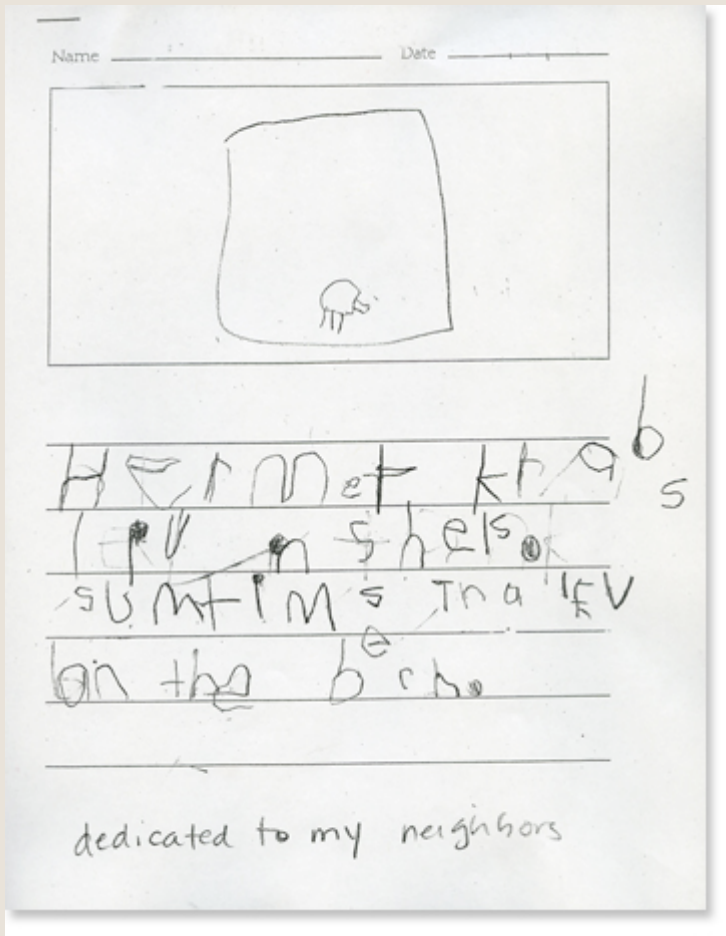 Name Date
Hermet krabs
liv in shels.
sumtims tha liv
on the bech.
dedicated to my neighbors